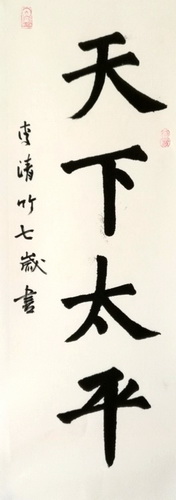 天下太平
李清竹七歲書